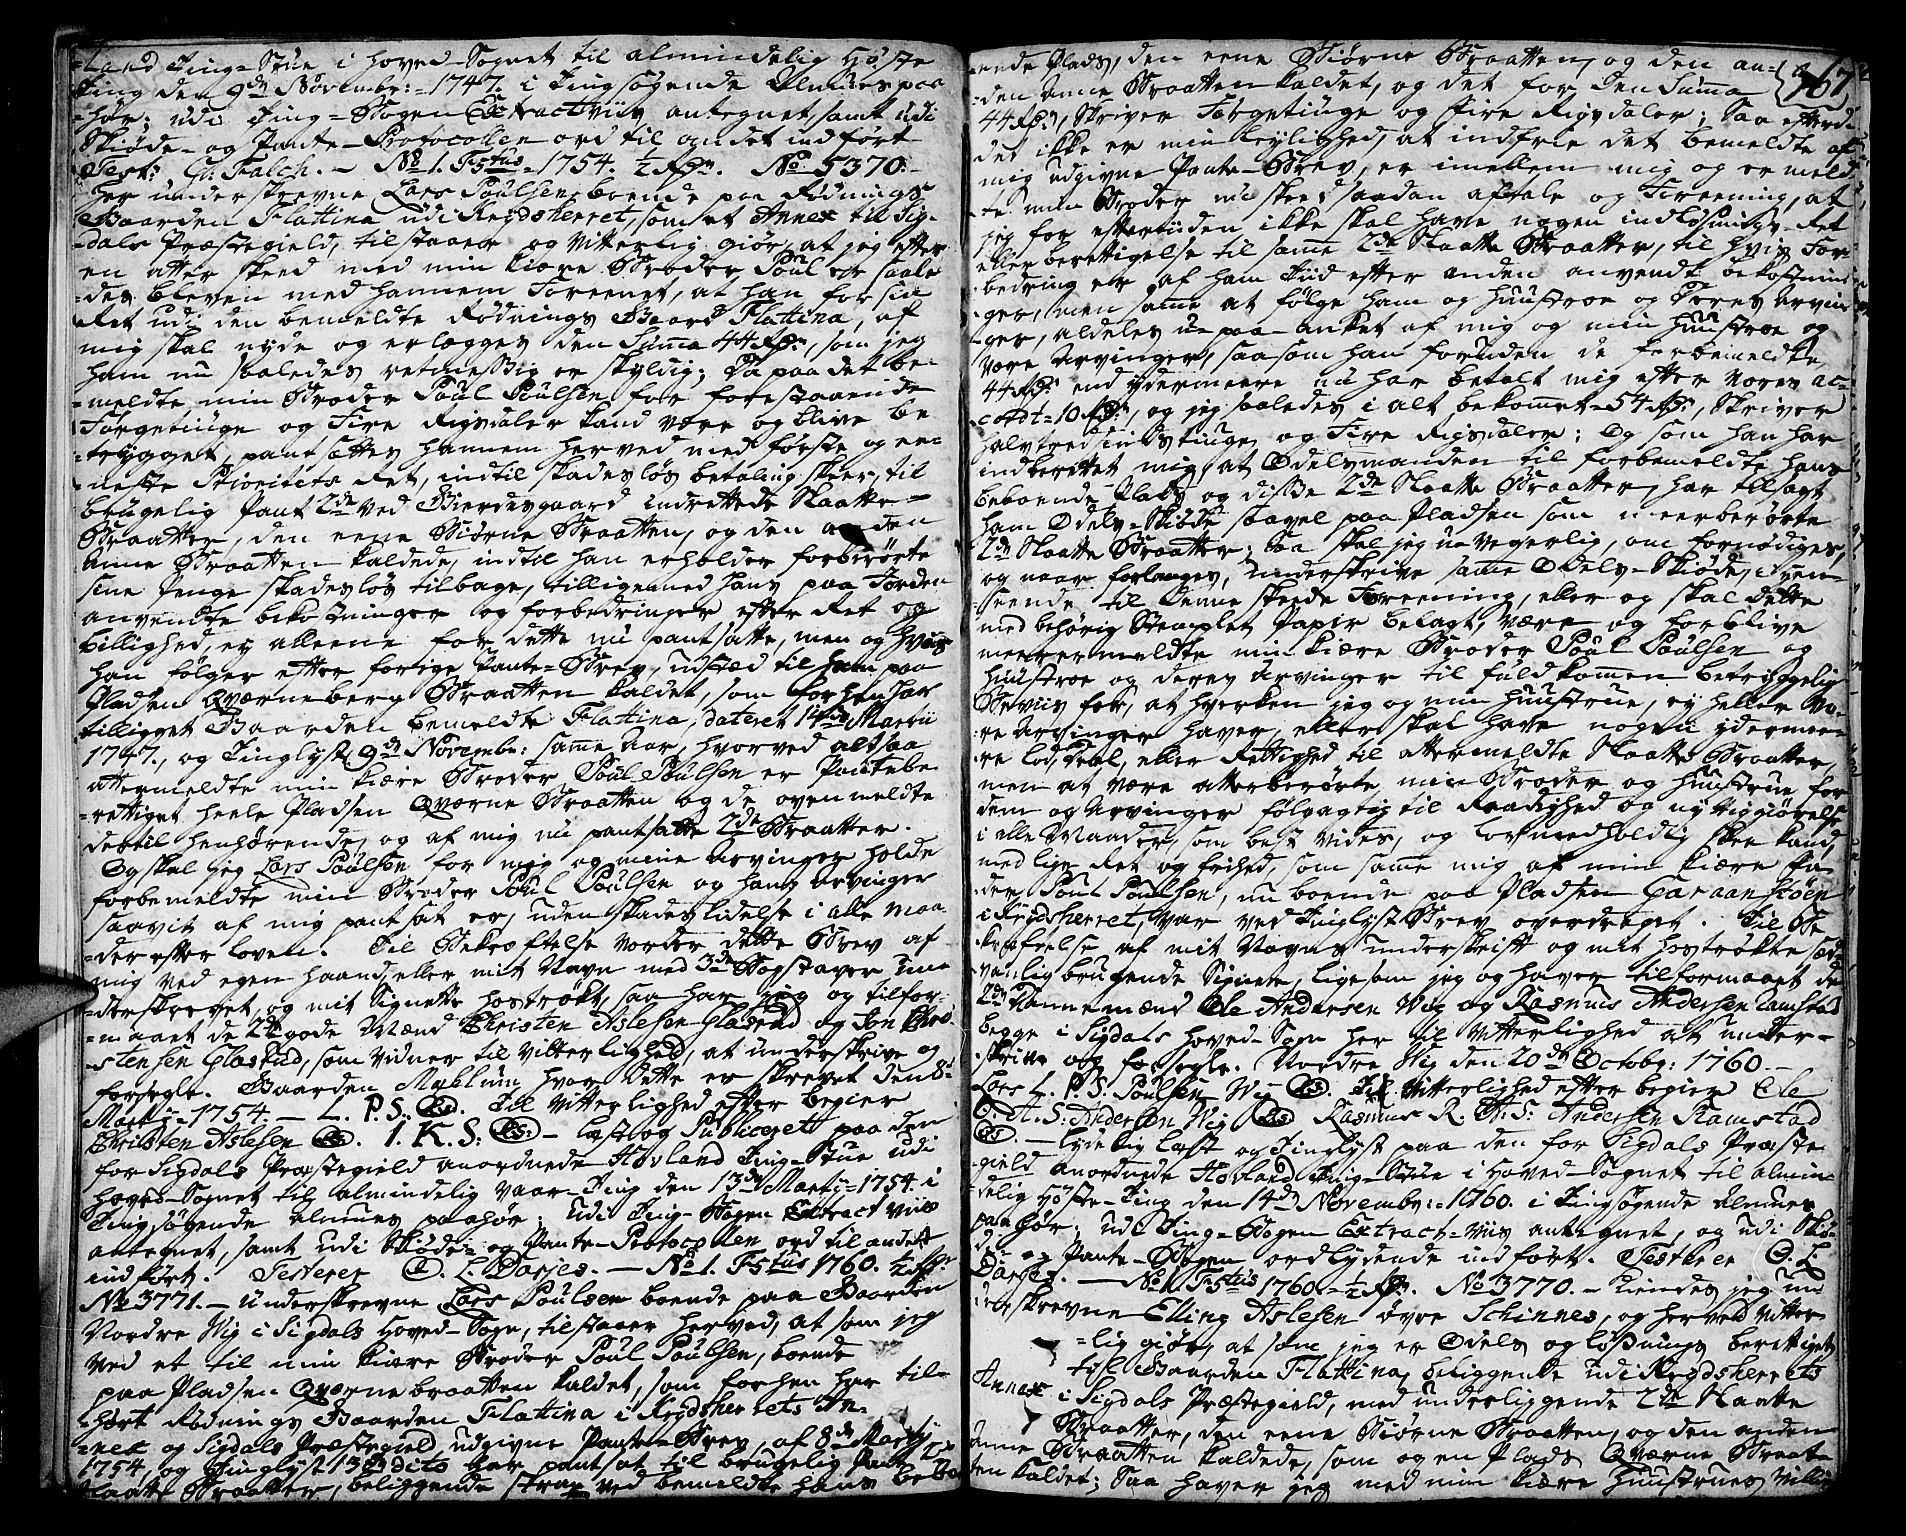 -land Ting-Stue i Hoved-Sognet til almindelig Høste
Ting den 9de Novembr: 1747. i Tingsøgende Almues paa
-hør; udi Ting-Bogen Extractviis antegnet, samt udi
Skiøde- og Pante-Protocollen ord til andet indført
Test: Gl: Falch. - No 1. Fstus 1754. ½ Rdr. No 5370.-
Her understrevne Lars Poulsen, boende paa Rødnings
Gaarden Flattina udi Krydsherret, som et Annex til Sig-
-dals Præstegield, tilstaaer og Vitterlig giør, at jeg efter
en atter skeed med min kiære Broder Poul er saale
-des bleven med hannem Foreenet, at han for sin
Ret udi den bemeldte Rødnings Gaard Flattina, af
mig skal nyde og erlægges den Suma 44 Rdr, som jeg
ham nu saaledes retmessig er skyldig; Da paa det be-
-meldte min Broder Poul Poulsen for forestaaende
Førgetiuge og Fire Rigsdaler kand være og blive be
-trygget, pantsættes hannem herved med første og ee-
neste Prioritets Ret, indtil skadesløs betaling skeer, til
brugelig Pant 2de ved Gierdesgaard indrettede Slaatte-
Braatter, den eene Biørne Braatten, og den anden
Anne Braatten kaldede, indtil han erholder forberørte
sine Penge skadesløs tilbage, tilligemed hans paa Jorden
anvendte bekostninger og forbedringer efter Ret og
billighed, ey alleene for dette nu pantsatte, men og hvis
han følger efter forige Pante-Brev, udstæd til ham paa
Pladsen Qværneberg Braatten kaldet, som forhen har
tilligget Gaarden bemeldte Flattina, dateret 14de Martii
1747., og Tinglyst 9de Novembr: samme Aar, hvorved altsaa
attermeldte min kiære Broder Poul Poulsen er Pantebe
-rettiget heele Pladsen Qværne Braatten og de ovenmeldte
dertil henhørende, og af mig nu pantsatte 2de Braatter.
Og skal jeg Lars Poulsen for mig og mine Arvinger holde
forbemeldte min Broder Poul Poulsen og hans Arvinger
saavit af mig pantsat er, uden skadeslidelse i alle Maa-
-der efter loven. Til Bekræftelse vorder dette Brev af
mig ved egen haand, eller mit Navn med 3de Bogstaver un-
-derskrevet, og mit Signette hostrøkt, saa har jeg og tilfor-
-maaet de 2de gode Mænd Christen Aslesen Glastad og Jon Chri-
-stensen Glastad, som vidner til vitterlighed, at underskrive og
forsegle. Gaarden Moklum hvor dette er skrevet den 8de
Martij 1754 - L. P. S. (LS). Til Vitterlighed efter begier
Christen Aslesen (LS). I. K. S: (LS:) - læst og Publiceret paa den
for Sigdals Præstegield anordnede Hovland Ting-Stue udi
Hoved-Sognet til almindelig Vaar-Ting den 13de Martij 1754. i
Tingsøgende Almues paahør; udi Ting-Bogen Extract viis
antegnet, samt udi Skiøde- og Pante-Protocollen ord til andet
indført. Testerer O. L. Darjes. - No 1. Fstus 1760. ½ Rdr.
No 3771. - Underskrevne Lars Poulsen boende paa Gaarden
Nordre Wig i Sigdals Hoved-Sogn, tilstaaer herved, at som jeg
ved et til min kiære Broder Poul Poulsen, boende
paa Pladsen Qværnebraatten kaldet, som forhen har til-
-hørt Rødnings Gaarden Flattina i Krydsherrets An-
-nex og Sigdals Præstegield udgivne Pante-Brev, af 8de Martij
1754, og Tinglyst 13de dito har pantsat til brugelig Pant 2de
Slaatte Braatter, beliggende strax ved bemeldte hans beboe
-ende Plads, den eene Biørne Braatten, og den an-
-den Anne Braatten kaldet, og det for den Suma
44 Rdr, Skriver Førgetiuge og Fire Rigsdaler; Saa efterdi
det ikke er min leylighed, at indfrie det bemeldte af
mig udgivne Pante-Brev, er imellem mig og ermeld-
-te min Broder nu skeed saadan aftale og Foreening, at
jeg for eftertiiden ikke skal have nogen indløsnings-Ret
eller berettigelse til samme 2de Slaatte Braatter, til hvis For
bedring er af ham Tiid efter anden anvendt bekostnin
-ger, men samme at følge ham og Huustroe og deres Arvin
-ger, aldeles u-paa-anket af mig og min Huustroe og
vore Arvinger, saasom han foruden de forbemeldte
44 Rdr end ydermeere nu har betalt mig efter vores ac-
-cordt 10 Rdr, og jeg saaledes i alt bekommet 54 Rdr, Skriver
halvtredsindstiuge og Fire Rigsdaler; Og som han har
indberettet mig, at Odelsmanden til forbemeldte hans
beboende Plads og disse 2de Slaatte Braatter, har tilsagt
ham Odels-Skiøde saavel paa Pladsen som meerberørte
2de Slaatte Braatter; Saa skal jeg u-vegerlig, om fornødiges,
og naar forlanges, underskrive samme Odels-Skiøde, i hen-
-seende til denne skeede Foreening, eller og skal dette
med behørig Stemplet Papir belagt, være og forblive
meerermeldte min kiære Broder Poul Poulsen og
Huustroe og deres Arvinger til fuldkommen betryggelig
Beviis for, at hverken jeg og min Huustrue, ey heller vo-
-re Arvinger haver, eller skal have nogen ydermee-
-re lod, deel, eller Rettighed til attermeldte Slaatte Braatter,
men at være atterberørte min Broder og Huustrue for
dem og Arvinger følgagtig til Raadighed og nyttiggiørelse
i alle Maader, som best vides, og lovmedholdig skee kand,
med lige Ret og frihed, som samme mig af min kiære Fa-
-der, Poul Poulsen, nu boende paa Pladsen Garaanskoen
i Krydsherret, var ved Tinglyst Brev overdraget. Til Be
-kræftelse af mit Navns underskrift og mit hostrøkte sæd-
vanlig brugende Signete, ligesom jeg og haver tilformaaet de
2de Dannemænd Ole Andersen Wig og Rasmus Andersen Ramstad
begge i Sigdals Hoved-Sogn her til vitterlighed at under-
skrive og forsegle. Nordre Wig den 20de Octobr: 1760.
Lars L. P. S. Poulsen Wig (LS). Til Vitterlighed efter begier Ole
O. A. S: Andersen Wig (LS) Rasmus R. A. S: Andersen Ramstad
(LS). - Lydelig læst og Tinglyst paa den for Sigdals Præste
gield anordnede Hovland Ting-Stue i Hoved-Sognet til almin-
delig Høste-Ting den 14de Novembr: 1760. i Tingsøgende Almues
paahør; udi Ting-Bogen Extract-viis antegnet, og udi Skiø-
de- og Pante-Bogen ordlydende indført. Testerer O. L.
Darjes. - No 1. Fstus 1760. ½ Rdr. No 3770. - Kiendes jeg und
derskrevne Elling Aslesen øvre Schinnes, og herved vitter-
-lig giør, at som jeg er Odels og løsnings berettiget
til Gaarden Flattina, beliggende udi Krydsherrets
Annex i Sigdals Præstegield, med underliggende 2de Slaatte
Braatter, den eene Biørne Braatten, og den anden
Anne Braatten kaldede, som og en Plads Qværne Braat-
ten kaldet; Saa haver jeg med min kiære Huustrues Villie